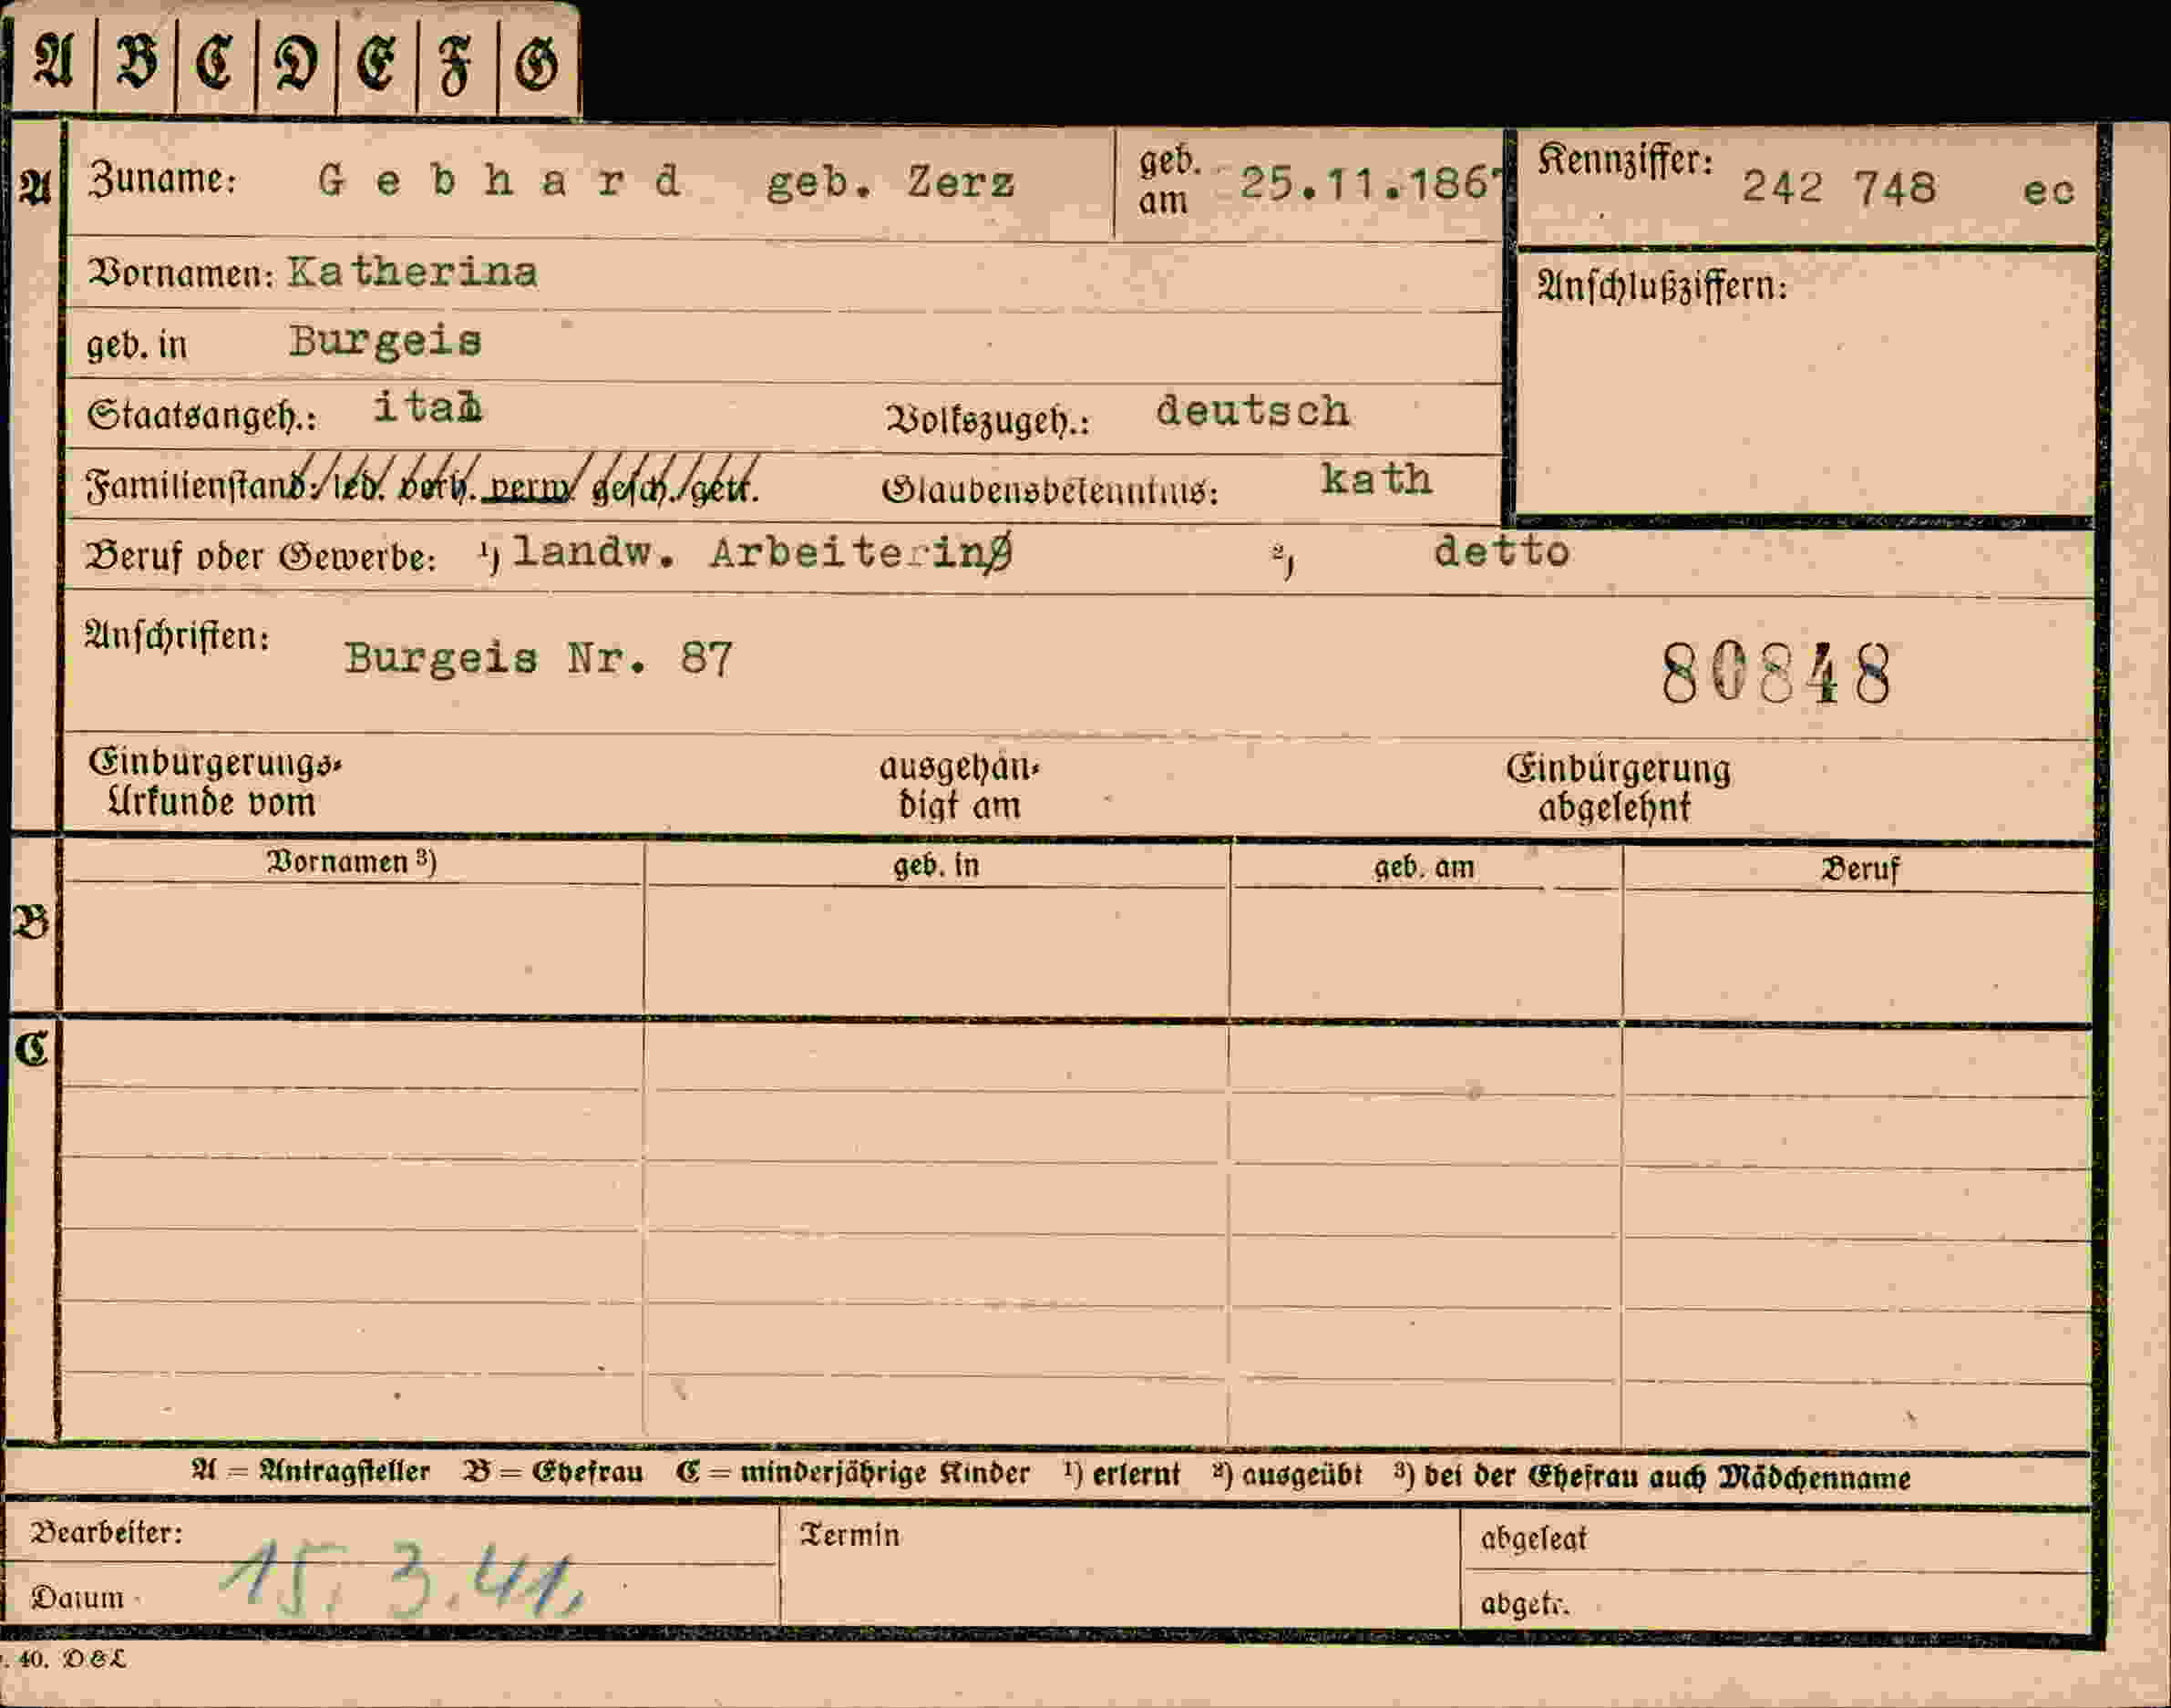 A B C D E F G
A Zuname: Gebhard geb. Zerz geb. am 25.11.1867 Kennziffer: 242 748 ec
Vornamen: Katherina Anschlußziffern:
geb. in Burgeis
Staatsangeh.: ital Volkszugeh.: deutsch
Familienstand: led. verh. verw. gesch. getr. Glaubensbekenntnis: kath
Beruf oder Gewerbe: ¹) landw. Arbeiterin ²) detto
Anschriften: Burgeis Nr. 87 80848
Einbürgerungs- ausgehän- Einbürgerung
Urkunde vom digt am abgelehnt
Vornamen ³) geb. in geb. am Beruf
B
C
A = Antragsteller B = Ehefrau C = minderjährige Kinder ¹) erlernt ²) ausgeübt ³) bei der Ehefrau auch Mädchenname
Bearbeiter: Termin abgelegt
Datum 15. 3. 41. abgetr.
. 40. D&L